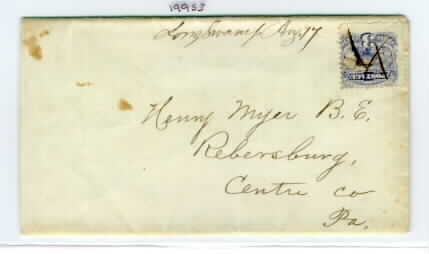 19953
Longswamp Aug 17
Henry Myer B. E.
Rebersburg,
Centre co
Pa.